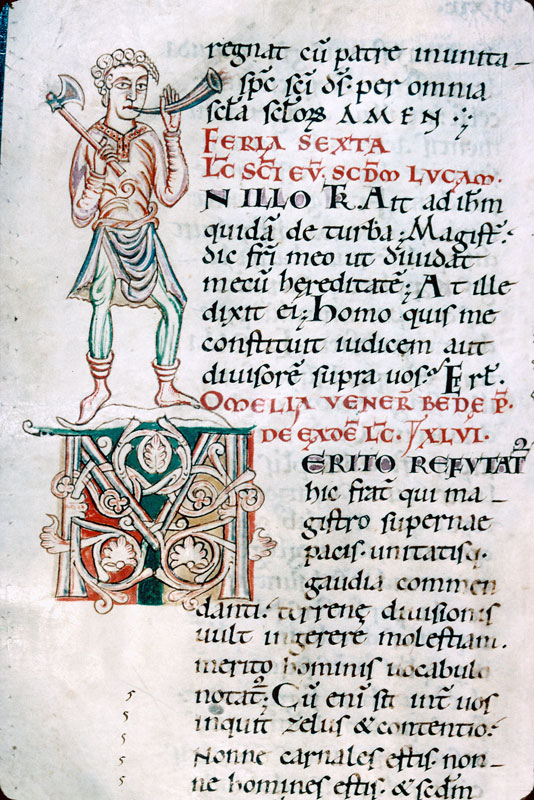 regnat cū patre in unita-
spc̄ sc̄i dś. per omnia
scl̄a scl̄orȝ AMEN
FERIA SEXTA
LC̄ SC̄I EV̄. SCDM̄ LUCAM.
N ILLO TR̄. Ait ad ih̄m
quidā de turba; Magist̄.
dic fr̄i meo ut diuidat
mecū hęreditatē; At ille
dixit ei; homo quis me
constituit iudicem aut
diuisorē supra uos;
OMELIA VENER̄ BEDE P̄.
DE EADĒ LC̄. XLVI.
M ERITO REFUTAT᷒
hic frat̄ qui ma-
gistro supernae
pacis. unitatisq.
gaudia commen
danti. terrenę diuisionis
uult ingerere molestiam.
merito hominis uocabulo
notat᷒; Cū eni sit int̄ uos
inquit zelus & contentio;
Nonne carnales estis. non-
ne homines estis. & scdm̄